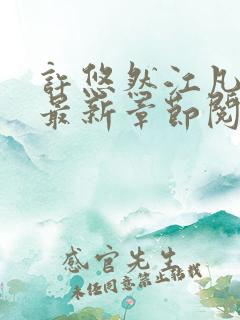 許悠然江凡
最新章節閱
感官先生
未经同意禁止转载